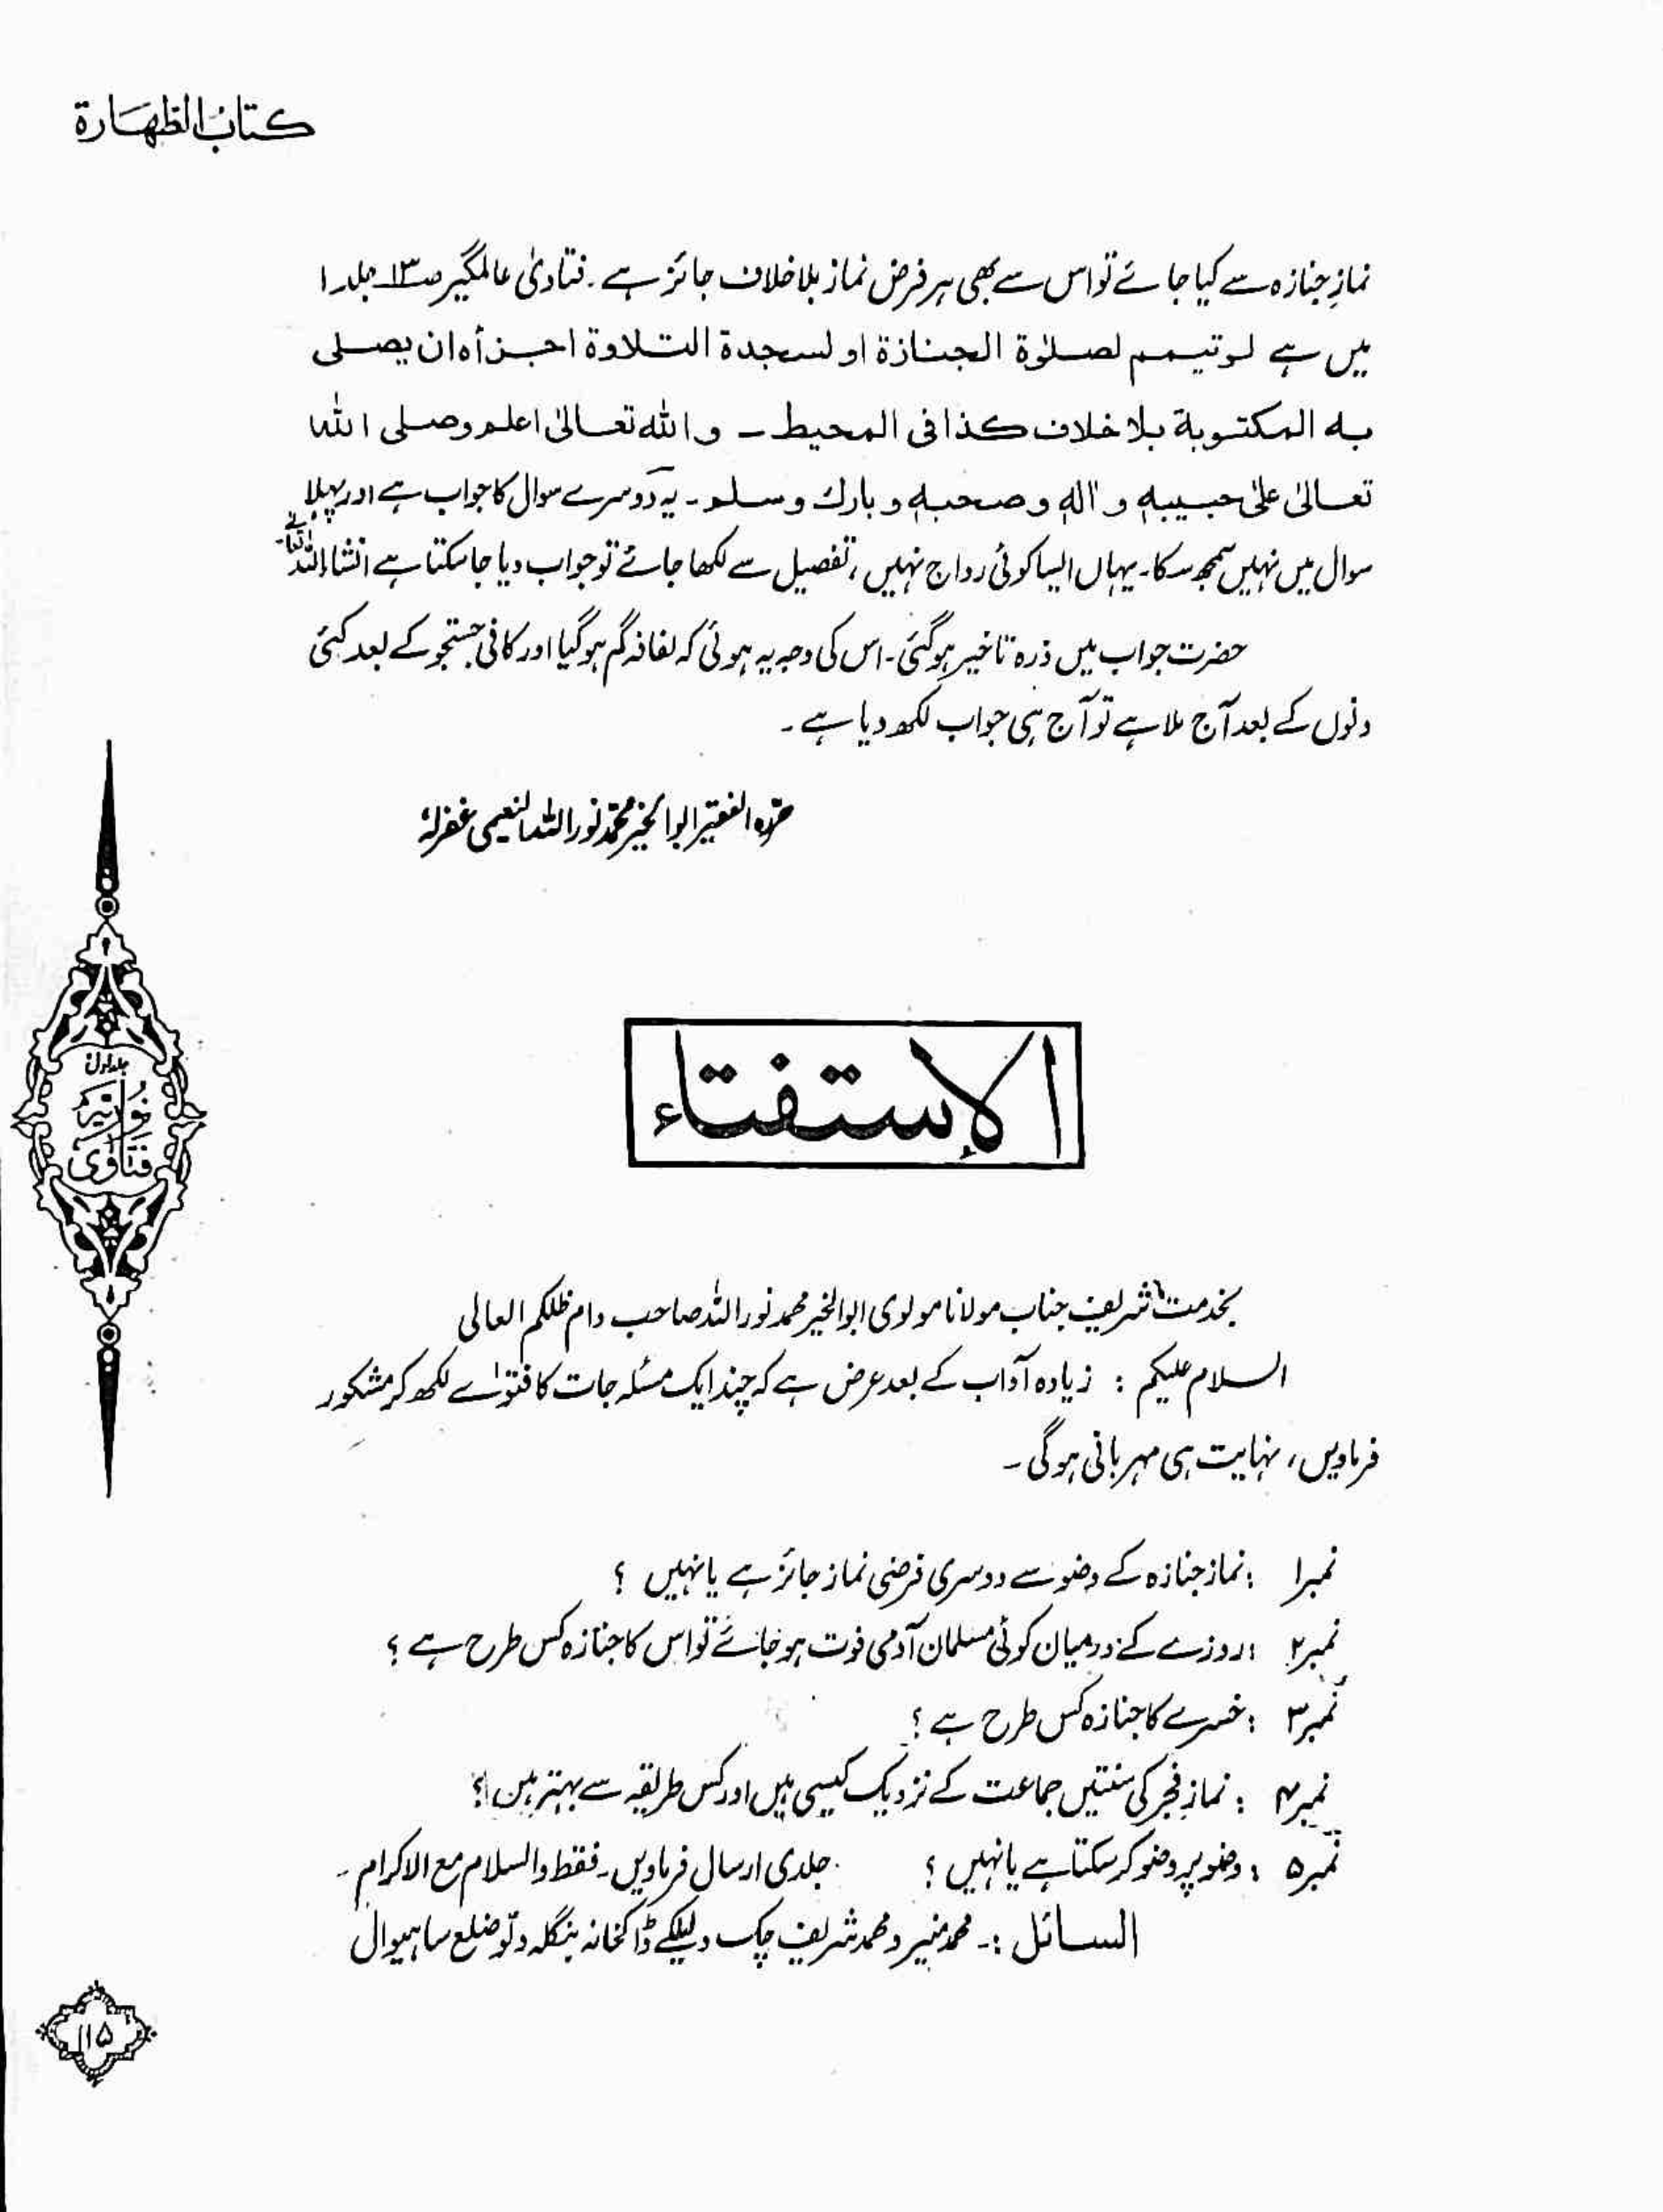 کتاب الطهارة
نمازِ جنازہ سے کیا جائے تو اس سے بھی ہر فرض نماز بلا خلاف جائز ہے۔ فتاویٰ عالمگیر صـ۱۳ جلد ۱
میں ہے لو تیمم لصلوٰة الجنازة او لسجدة التلاوة اجزأه ان یصلی
به المکتوبة بلا خلاف کذا فی المحیط ـ و الله تعالیٰ اعلم وصلی الله
تعالیٰ علیٰ حبیبه و اٰله و صحبه و بارك وسلم ۔ یہ دوسرے سوال کا جواب ہے اور پہلا
سوال میں نہیں سمجھ سکا۔ یہاں ایسا کوئی رواج نہیں، تفصیل سے لکھا جائے تو جواب دیا جا سکتا ہے انشاء اللہ تعالےٰ۔
حضرت جواب میں ذرہ تاخیر ہوگئی۔ اس کی وجہ یہ ہوئی کہ لفافہ گم ہو گیا اور کافی جستجو کے بعد کئی
دنوں کے بعد آج ملا ہے تو آج ہی جواب لکھ دیا ہے ۔
حررہ الفقیر ابوالخیر محمد نور اللہ النعیمی غفرلہٗ
الإستفتاء
جلد اول
نوریہ
فتاویٰ
بخدمت شریف جناب مولانا مولوی ابوالخیر محمد نور اللہ صاحب دام ظلکم العالی
السلام علیکم : زیادہ آداب کے بعد عرض ہے کہ چند ایک مسئلہ جات کا فتوٰے لکھ کر مشکور
فرماویں، نہایت ہی مہربانی ہوگی ۔
نمبر۱ : نماز جنازہ کے وضو سے دوسری فرضی نماز جائز ہے یا نہیں ؟
نمبر۲ : روزے کے درمیان کوئی مسلمان آدمی فوت ہو جائے تو اس کا جنازہ کس طرح ہے ؟
نمبر۳ : خسرے کا جنازہ کس طرح ہے ؟
نمبر۴ : نمازِ فجر کی سنتیں جماعت کے نزدیک کیسی ہیں اور کس طریقہ سے بہتر ہیں ؟
نمبر۵ : وضو پر وضو کر سکتا ہے یا نہیں ؟ جلدی ارسال فرماویں۔ فقط والسلام مع الاکرام ۔
السائل :۔ محمد منیر و محمد شریف چک ڈاکخانہ بنگلہ ضلع ساہیوال
۱۱۵